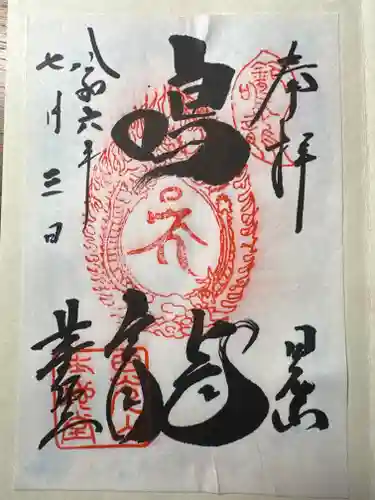 奉拝
日光
鳴龍
令和六年
七月三日
薬師堂